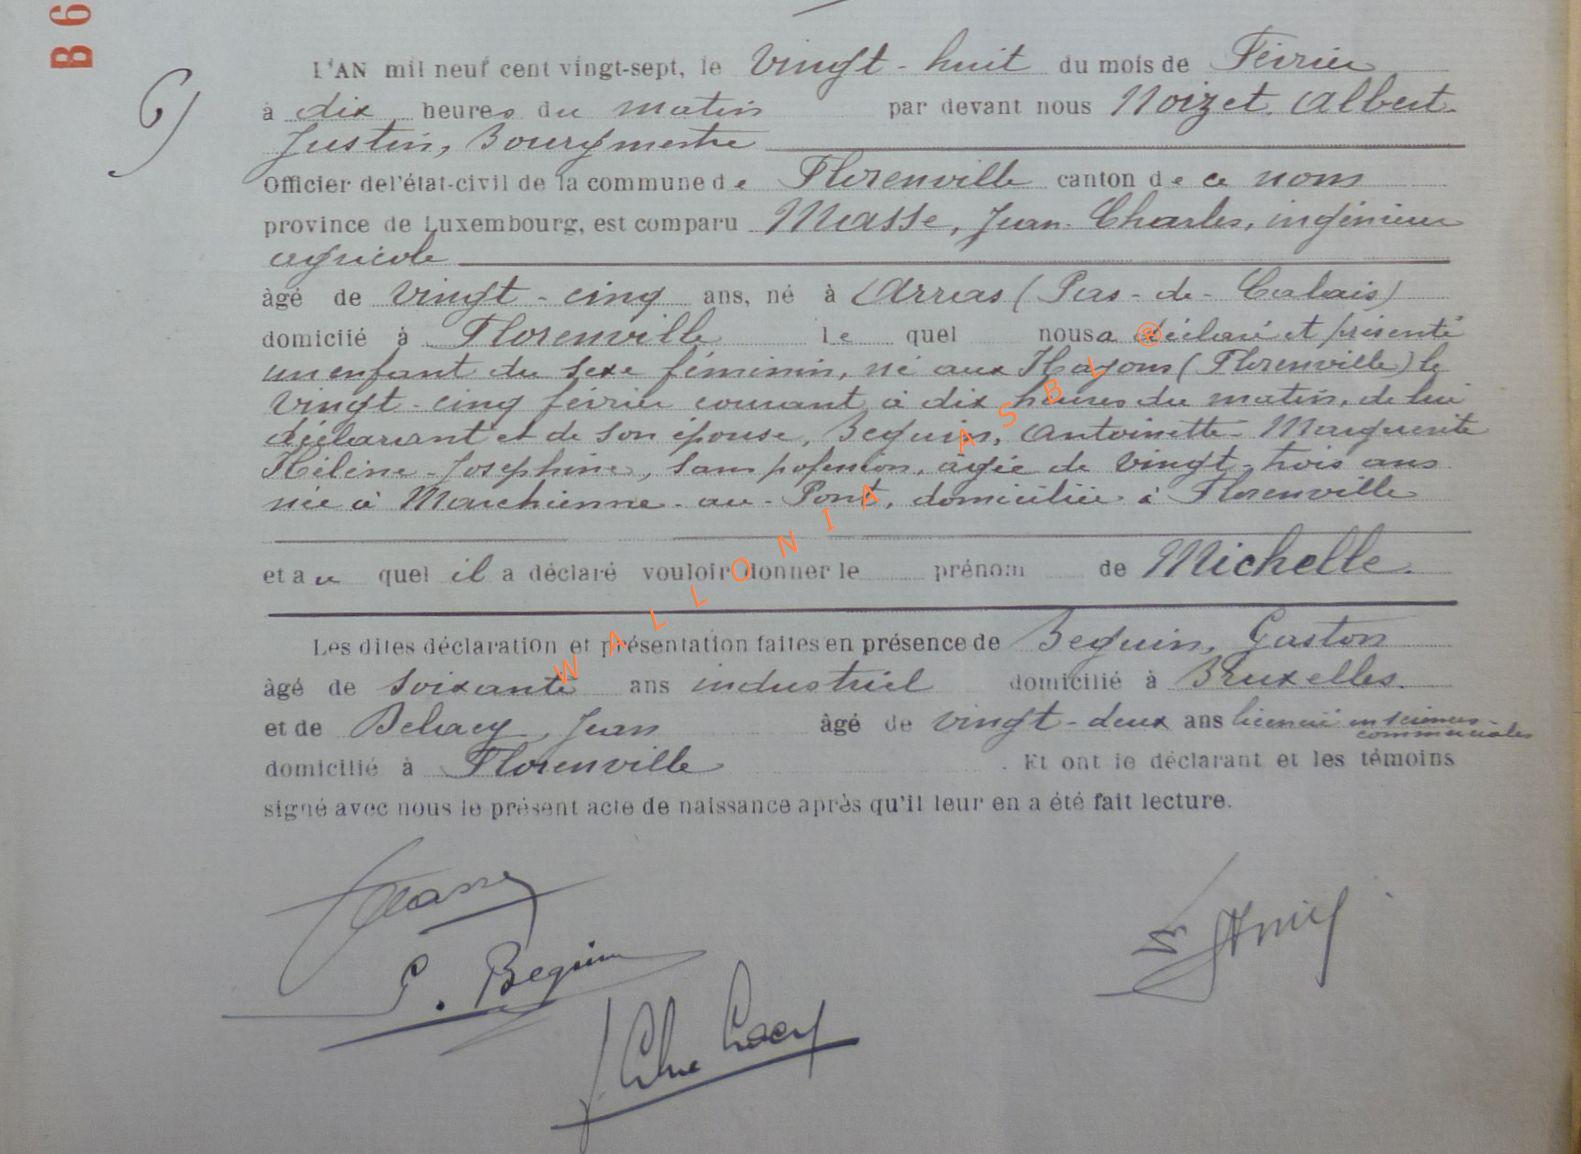 B 6
6)
L'AN mil neuf cent vingt-sept, le vingt-huit du mois de Février
à dix heures du matin par devant nous Noizet. Albert.
Justin, Bourgmestre
Officier del'état-civil de la commune de Florenville canton de ce nom
province de Luxembourg, est comparu Masse, Jean-Charles, ingénieur
agricole
âgé de vingt-cinq ans, né à Arras (Pas-de-Calais)
domicilié à Florenville lequel nous a déclaré et présenté
un enfant du sexe féminin, né aux Hayons (Florenville) le
vingt-cinq février courant à dix heures du matin, de lui
déclarant et de son épouse, Bequin, Antoinette-Marguerite
Hélène-Josephine, sans pofession, agée de vingt-trois ans
née à Marchienne-au-Pont, domiciliée à Florenville
et au quel il a déclaré vouloir donner le prénom de Michelle.
Les dites déclaration et présentation faites en présence de Bequin, Gaston
âgé de soixante ans industriel domicilié à Bruxelles.
et de Jean âgé de vingt-deux ans licencié en sciences-
commerciales
domicilié à Florenville. Et ont le déclarant et les témoins
signé avec nous le présent acte de naissance après qu'il leur en a été fait lecture.
Masse
G. Bequin
WALLONIA ASBL ®